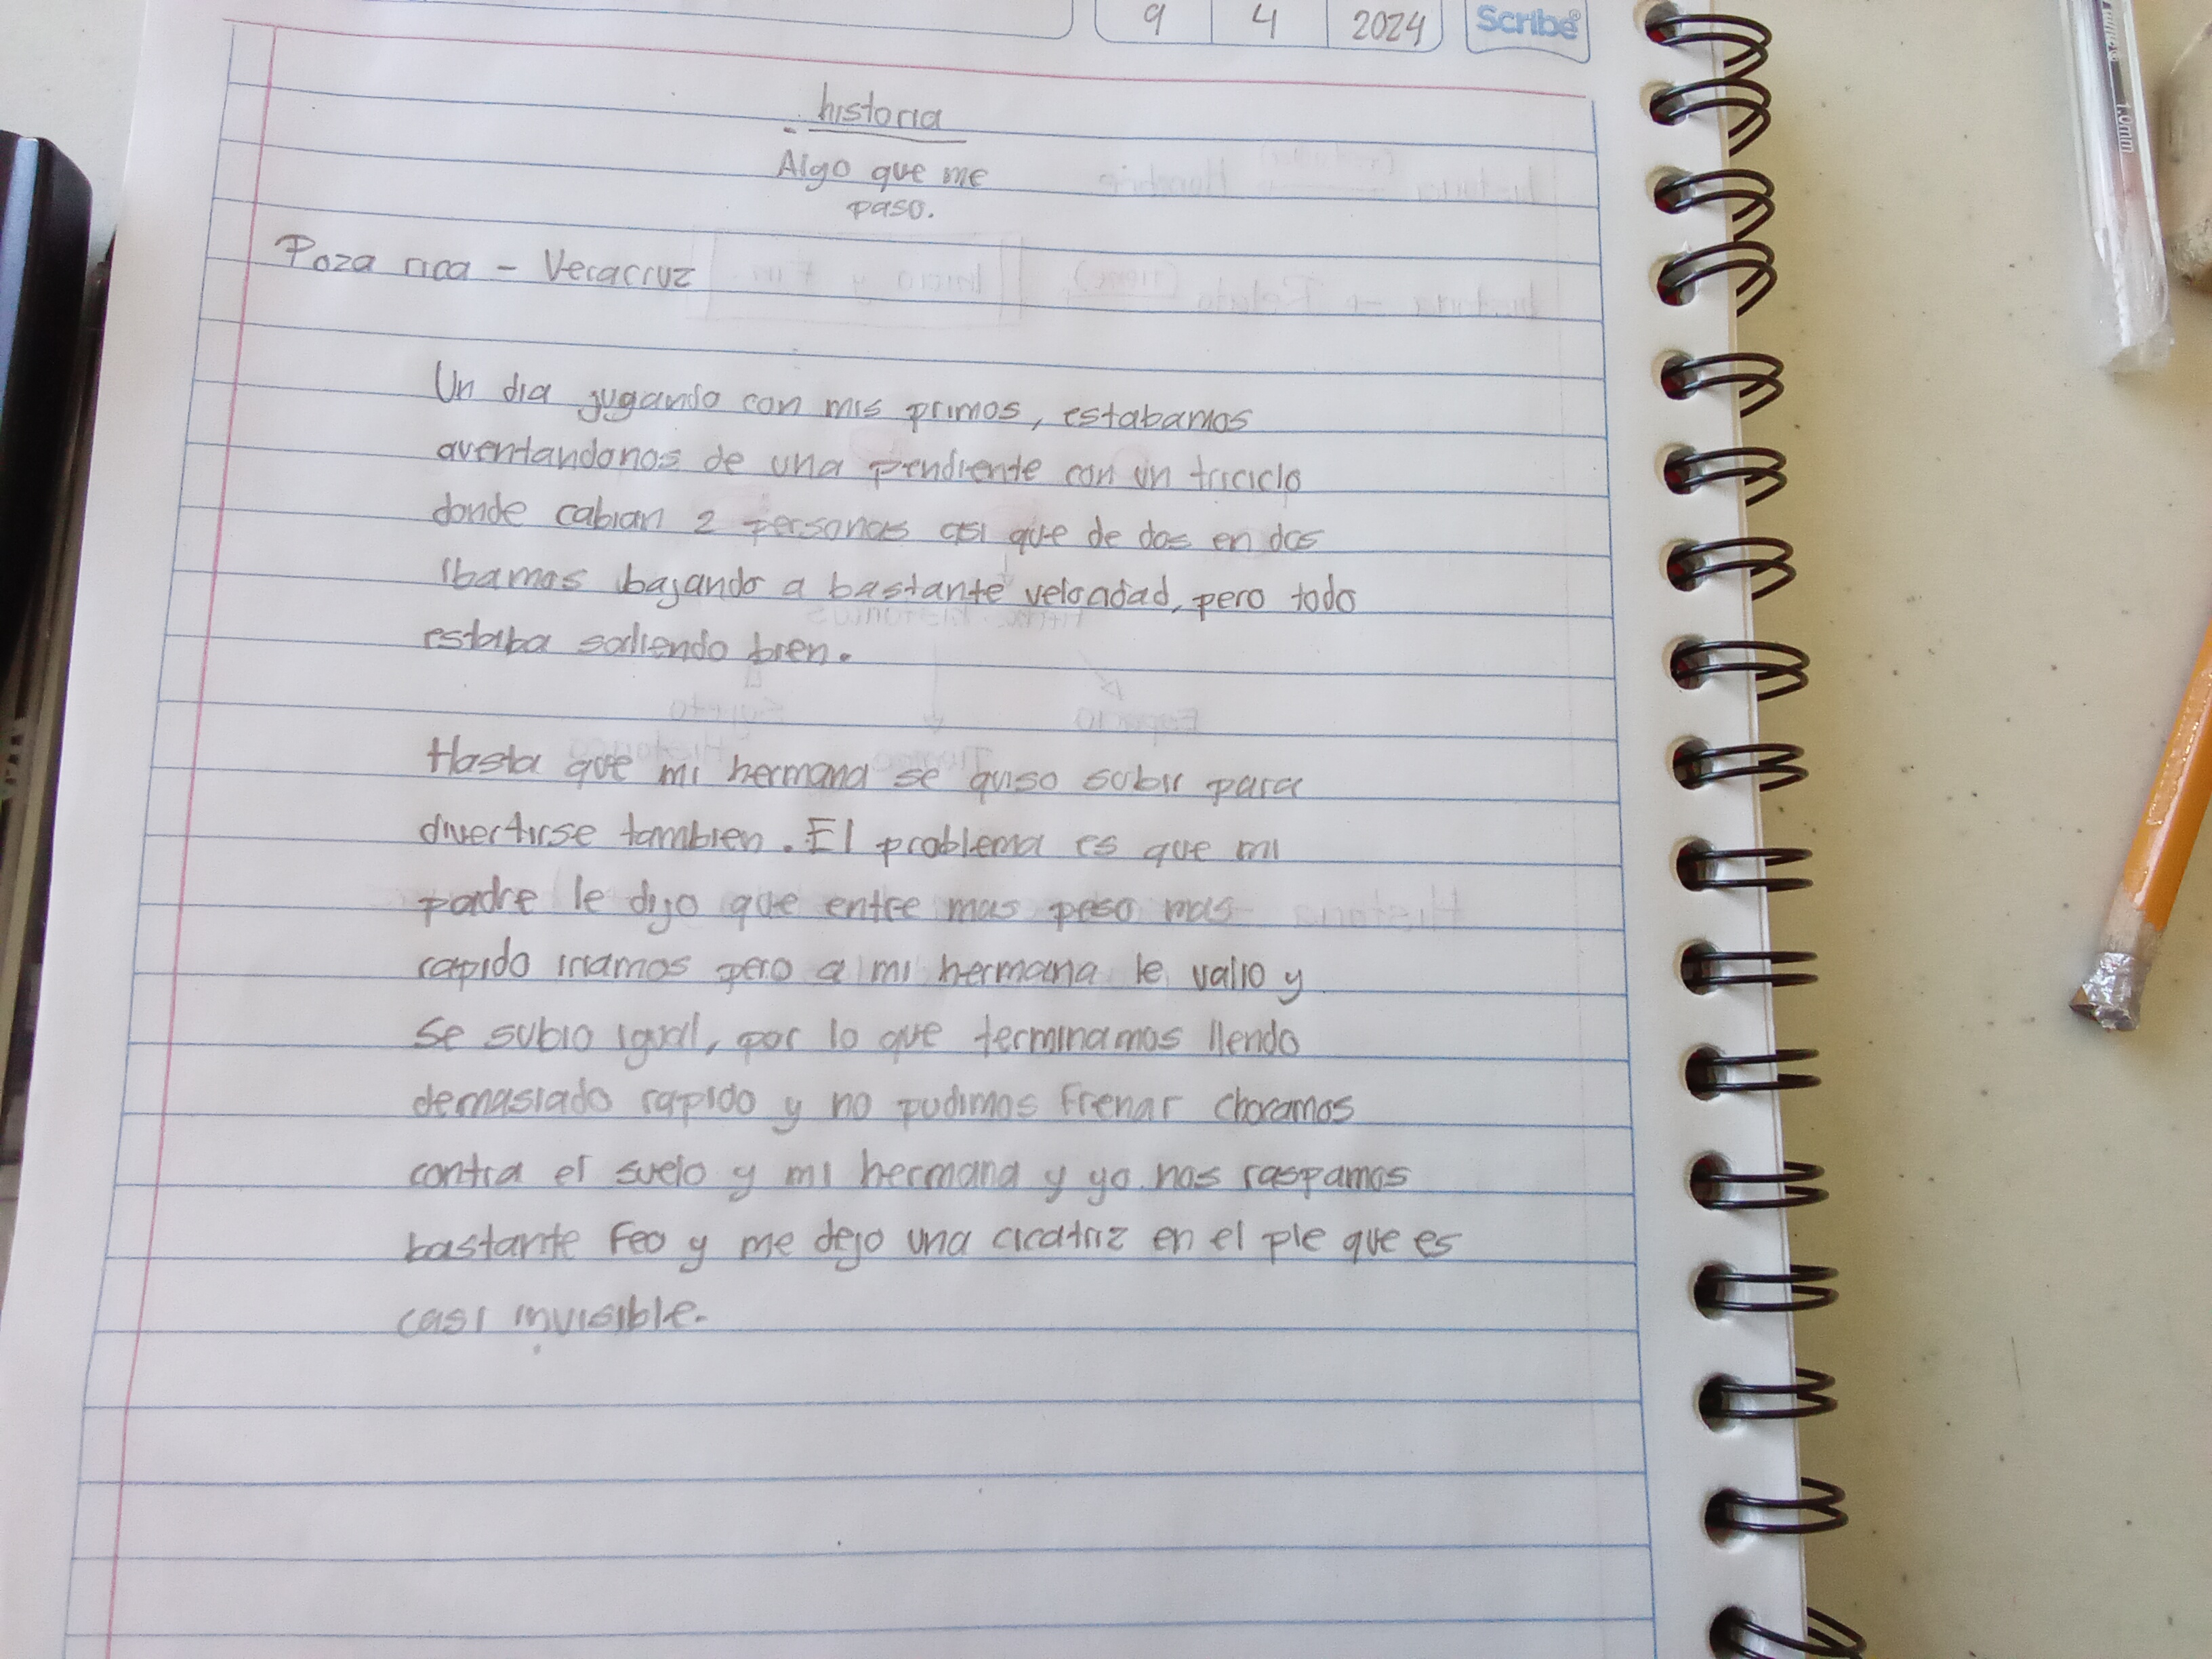 9 4 2024 Scribe
historia
Algo que me
paso.
Poza rica - Veracruz
Un dia jugando con mis primos, estabamos
aventandonos de una pendiente con un triciclo
donde cabian 2 personas asi que de dos en dos
ibamos bajando a bastante velocidad, pero todo
estaba saliendo bien.
Hasta que mi hermana se quiso subir para
divertirse tambien. El problema es que mi
padre le dijo que entre mas peso mas
rapido iriamos pero a mi hermana le valio y
se subio igual, por lo que terminamos llendo
demasiado rapido y no pudimos frenar chocamos
contra el suelo y mi hermana y yo nos raspamos
bastante feo y me dejo una cicatriz en el pie que es
casi invisible.
1.0mm